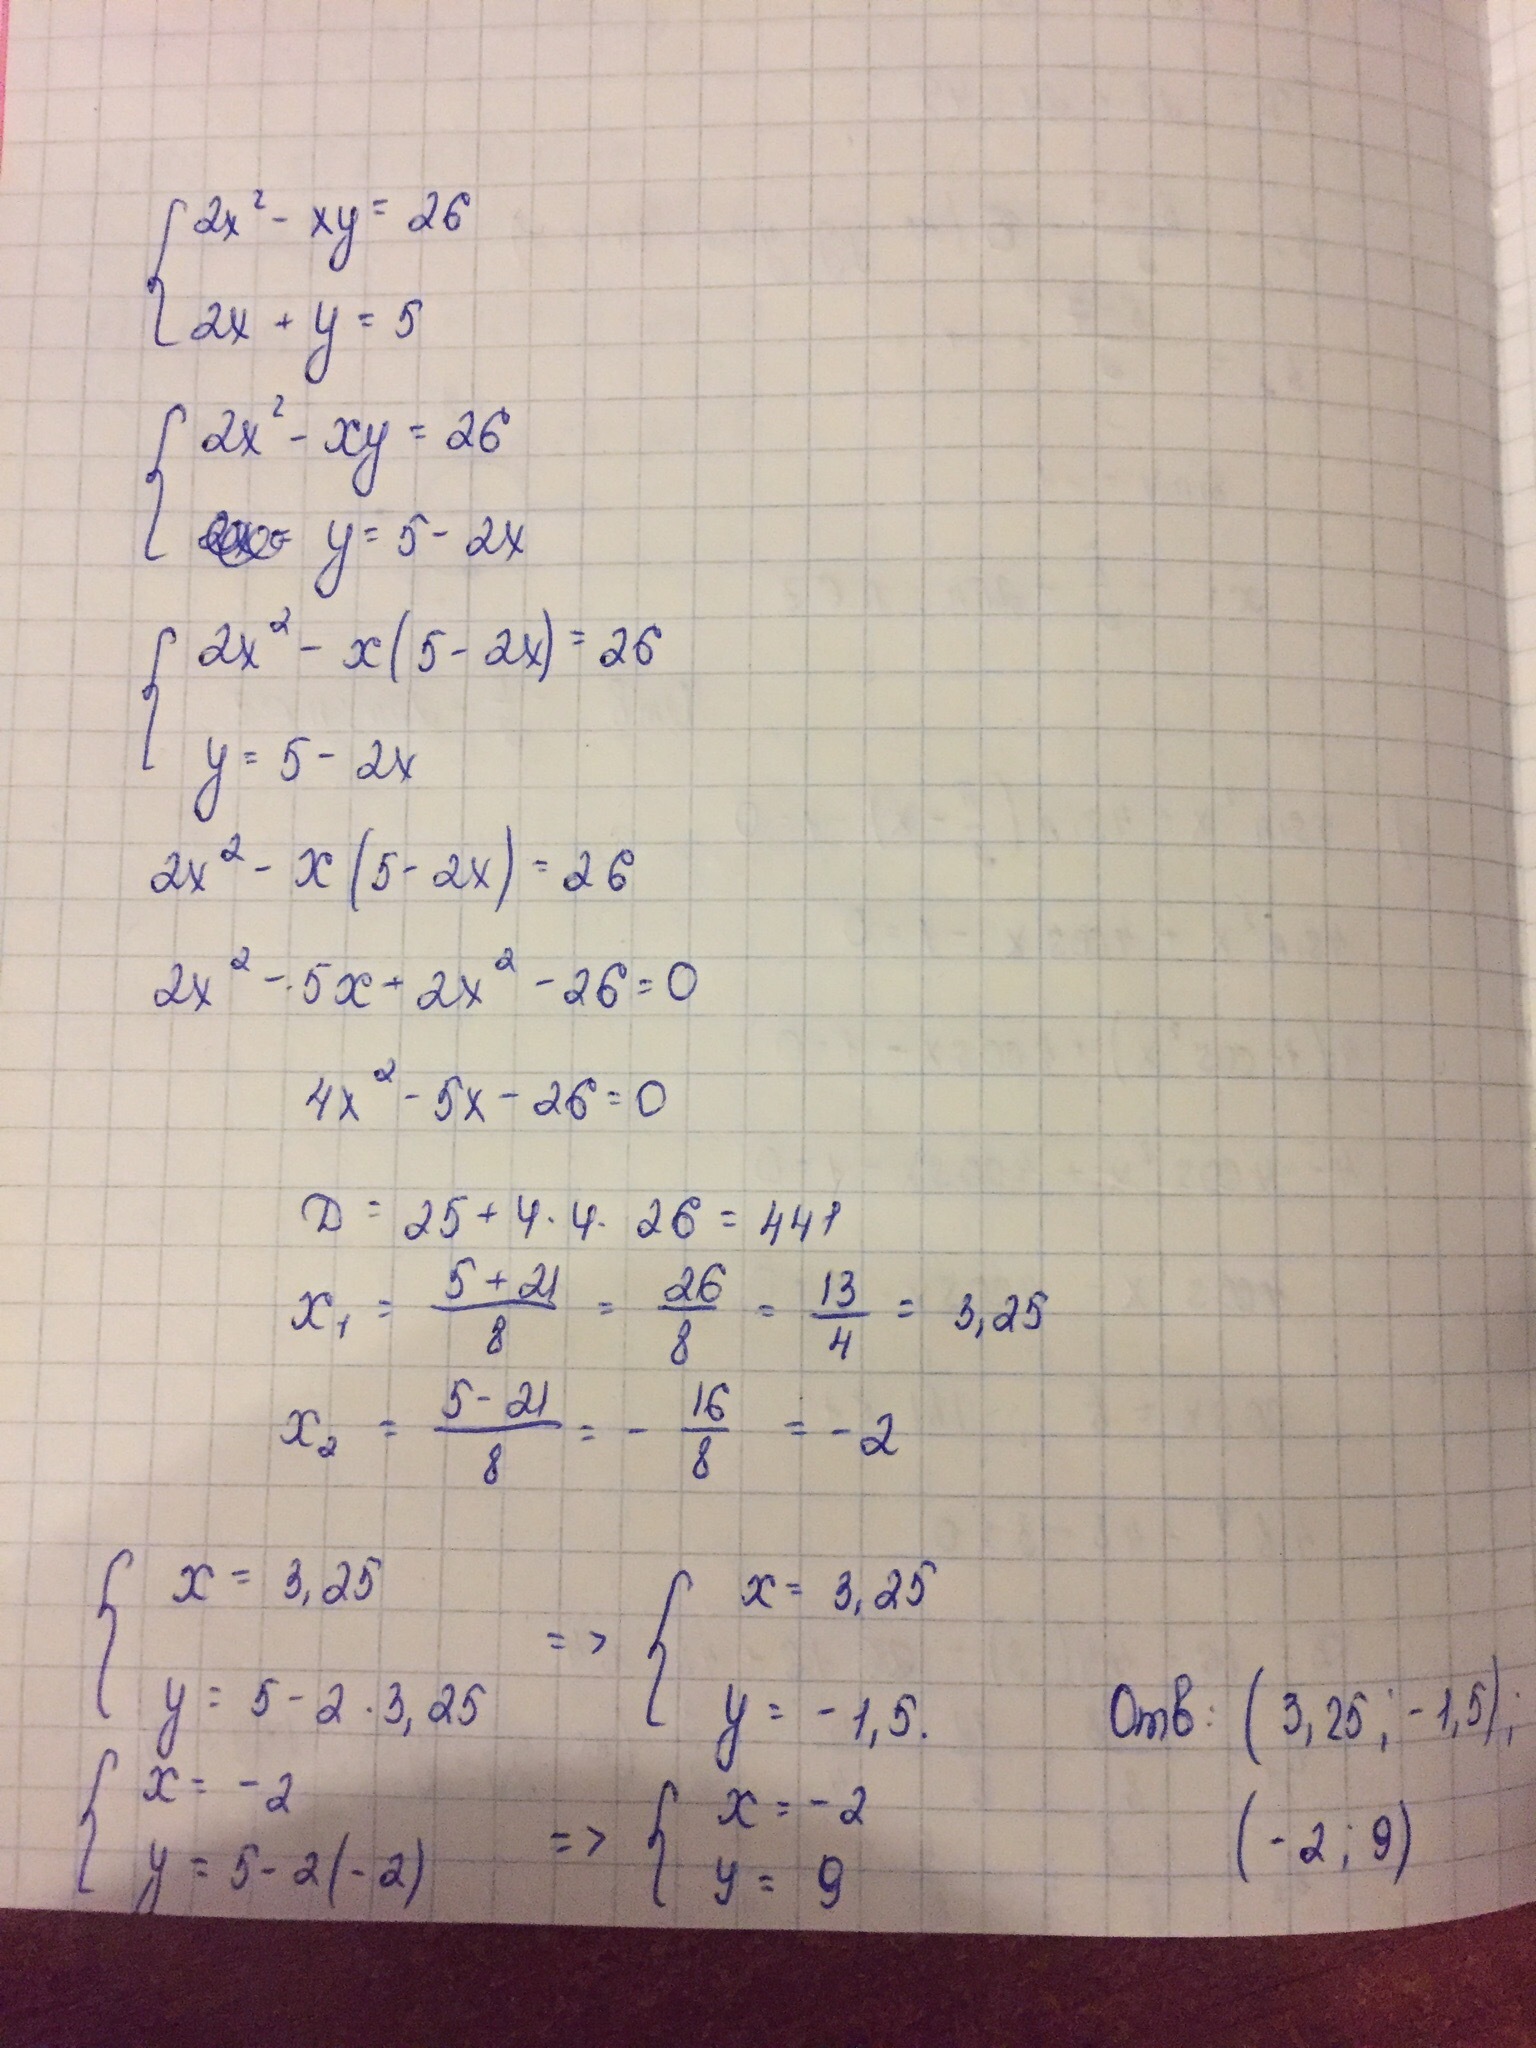 2x² - xy = 26
2x + y = 5
2x² - xy = 26
y = 5 - 2x
2x² - x(5 - 2x) = 26
y = 5 - 2x
2x² - x(5 - 2x) = 26
2x² - 5x + 2x² - 26 = 0
4x² - 5x - 26 = 0
D = 25 + 4·4·26 = 441
x₁ = (5+21)/8 = 26/8 = 13/4 = 3,25
x₂ = (5-21)/8 = -16/8 = -2
x = 3,25 => x = 3,25
y = 5 - 2·3,25 y = -1,5.
Отв: (3,25; -1,5);
x = -2 => x = -2
y = 5 - 2(-2) y = 9
(-2; 9)